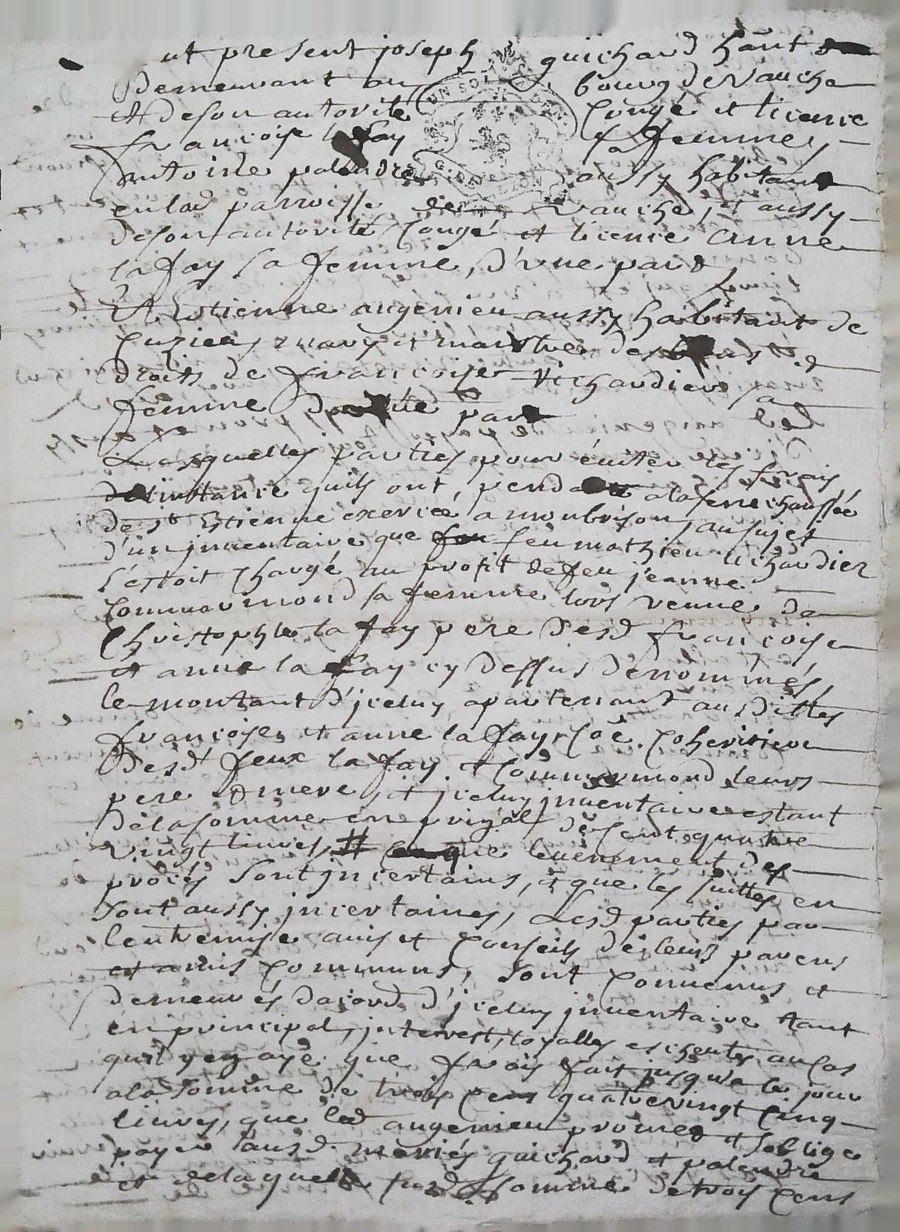 ut present joseph guichard hant
Demeurant au bourg de vauche
Et de son autorité Congé et licence
françoise la fay sa femme,
antoine palandre aussy habitant
en lad parroisse de vauche, et aussy
de son autorité Congé et licence anne
la fay sa femme, d'une part
Et Estienne augenieu aussy habitant de
mary et maistre des et
droits de françoise richardier
femme part
Lesquelles parties pour éviter les frais
de l'instance quils ont, pend a la senechaussée
de st Estienne exercée a monbrison, au sujet
d'un jnventaire que feu mathieu richardier
s'estoit chargé au profit de feu jeanne
Commarmond sa femme lors venue de
Christophle la fay pere desd françoise
et anne la fay cy dessus denommés,
le montant d'jceluy apartenant ausdittes
françoise, et anne la fay Coheritiere
Desd feux la fay et Commarmond leurs
pere et mere, et jceluy jnventaire estant
De la somme en de cent quatre
vingt livres, que l'evenement des
procès sont jncertains, et que les suittes en
sont aussy jncertaines, Lesd parties par
l'entremise avis et Conseils de leurs parens
et amis Communs, sont Convenus et
demeurés dacord d'jceluy jnventaire tant
en principal, jnterest, loyalles au cas
quil y en aye que frais fait jusqu'a ce jour
a la somme de trois cens quatrevingt Cinq
livres, que led augenieu promet et s'oblige
payer ausd mariés guichard et palandre
et de laquelle somme de trois cens